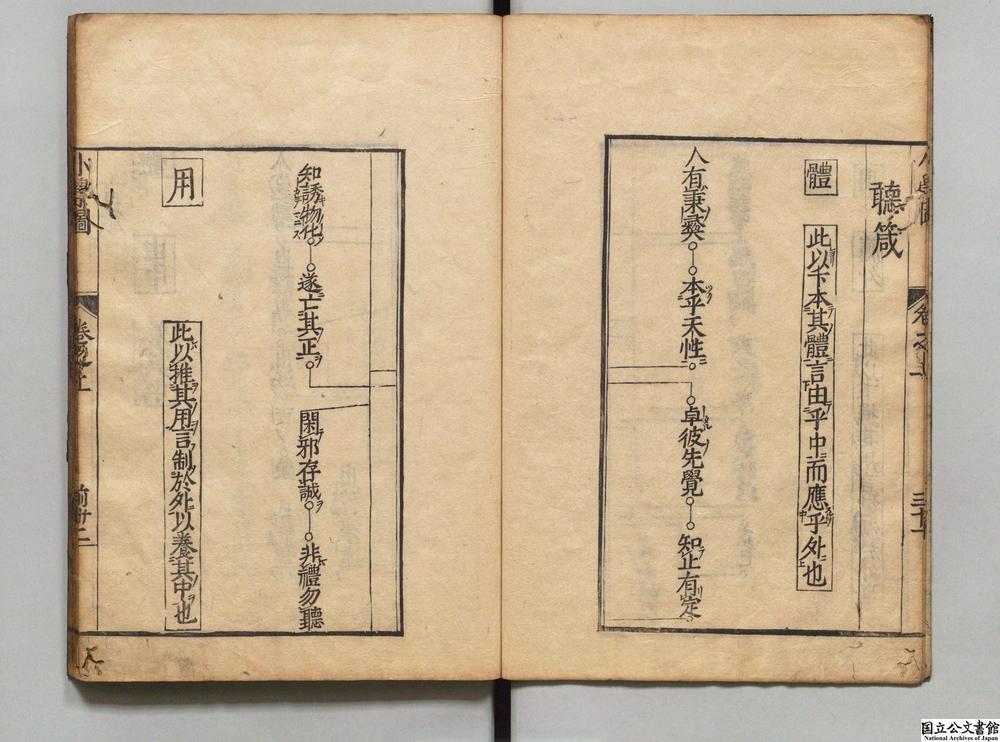 聽箴
體
此以下本其體言由乎中而應乎外也
人有秉彜
本乎天性
卓彼先覺
知止有定
知誘物化
遂亡其正
閑邪存誠
非禮勿聽
用
此以推其用言制於外以養其中也
国立公文書館
National Archives of Japan